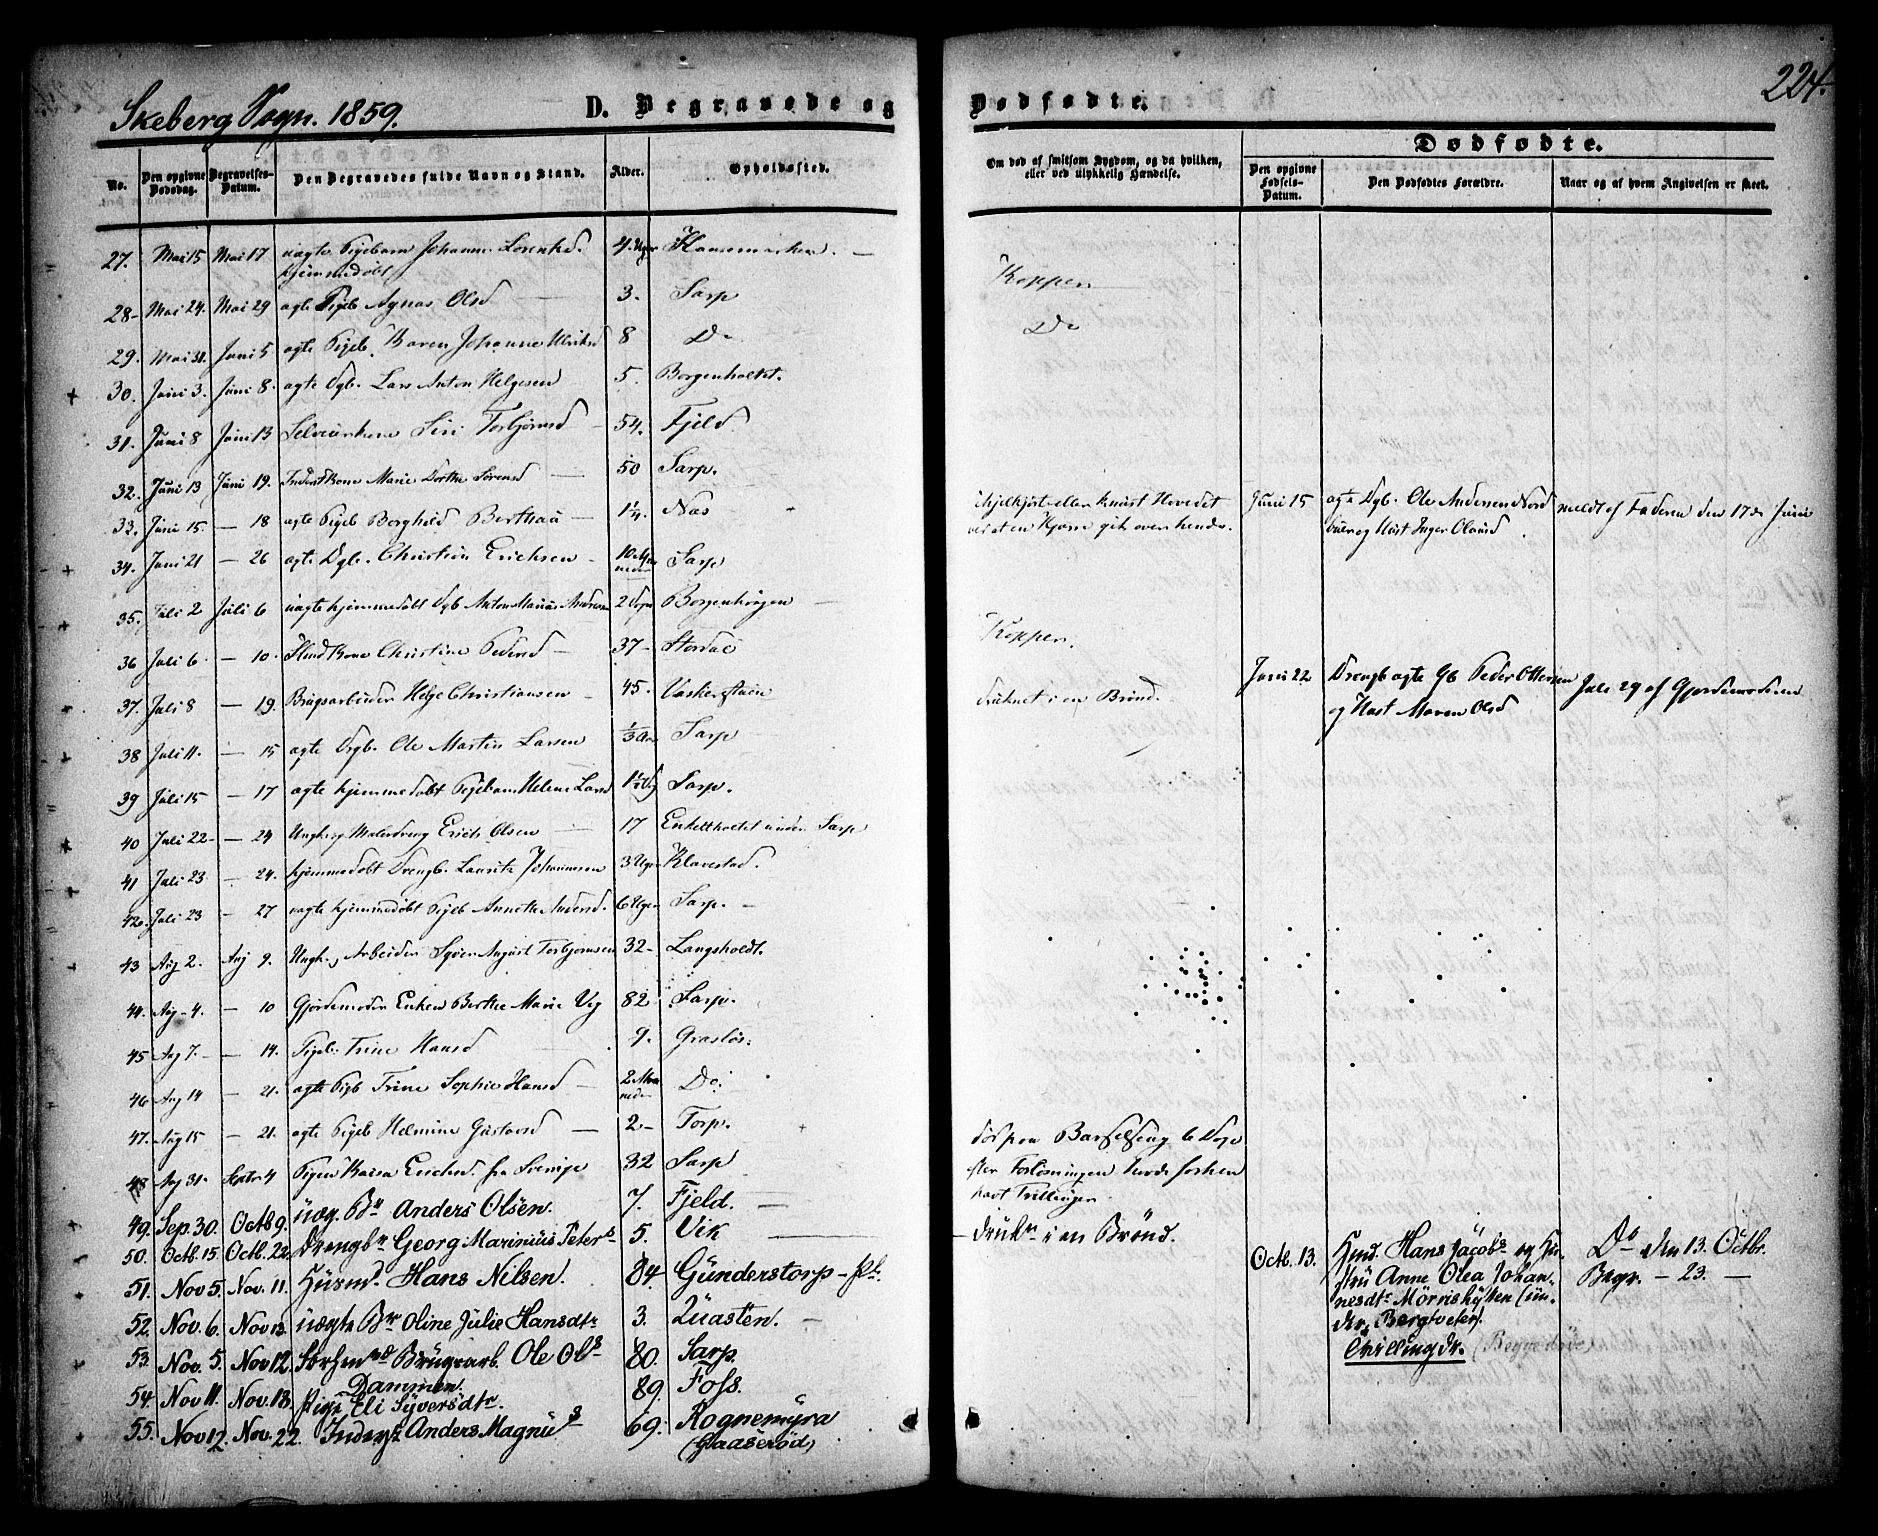 Skeberg Sogn. 1859.
D. Begravede og Dødfødte.
224.
No.
Den opgivne Dødsdag.
Begravelses-Datum.
Den Begravedes fulde Navn og Stand.
Alder.
Opholdssted.
Om død af smitsom Sygdom, og da hvilken, eller ved ulykkelig Hændelse.
Dødfødte.
Den opgivne Fødsels-Datum.
Den Dødfødtes Forældre.
Naar og af hvem Angivelsen er skeet.
27. Mai 15 Mai 17 uægte Pigebarn Johanne Lorentsd. 4 Uger
hjemmedøbt
Kopper
28 Mai 24. Mai 29 ægte Pigeb Agnes Olsd 3. Sarp
Do
29. Mai 31. Juni 5 ægte Pigeb. Karen Johanne Ulriksd 8 Do
30. Juni 3. Juni 8. ægte Dgb. Lars Anton Helgesen 5. Borgenholtet.
31. Juni 8 Juni 13 Siri Torbjørnsd 54. Fjeld.
32. Juni 13 Juni 19. Inderstkone Marie Dorthe Sørensd 50 Sarp.
33. Juni 15. — 18 ægte Pigeb Borghild 1¼. Næs
ihjelkjørt eller knust Hovedet
ved at en Kjærre gik over hende.
Juni 15 ægte Dgb. Ole Andersen Nord
og Hust Inger Olausd
meldt af Faderen den 17de Juni
34. Juni 21 — 26 ægte Dgb. Christian Erichsen 10 Maaneder Sarp
35. Juli 2 Juli 6 uægte hjemmedøbt Dgb Anton Marius Andersen 2 Dage Borgenhaugen
Kopper.
36 Juli 6 — 10. Kone Christine Pedersd 37 Stordal
Juni 22 Drengb ægte Gb Peder Ottersen
og Hust Maren Olsd
Juli 29 af Gjordemoderen
37. Juli 8 — 19. Brugsarbeider Helge Christiansen 45.
druknet i en Brønd.
38 Juli 11. — 15 ægte Drgb. Ole Martin Larsen ⅓ Aar Sarp
39 Juli 15 — 17 ægte hjemmedøbt Pigebarn Helene Larsd Sarp.
40 Juli 22 — 24 Ungk. og Malerdreng Erich Olsen 17 Enkeltholtet under Sarp
41 Juli 23 — 24. hjemmedøbt Drengb. Lauritz Johannessen 3 Uger Klavestad.
42. Juli 23 — 27 uægte hjemmedøbt Pigeb Annette Andersd. 6 Uger Sarp.
43 Aug 2. Aug 9. Ungk., Arbeider Syver August Torbjørnsen 32 Langsholdt.
44. Aug 4. — 10 Gjordemoder Enken Berthe Marie Vig 82 Sarp.
45 Aug 7. — 14. Pigeb. Trine Hansd 9. Grasløs.
46 Aug 14 — 21. ægte Pigb Trine Sophie Hansd 2 Maaneder Do.
47. Aug 15 — 21. ægte Pigeb Helmine Gustavsd 2 Torp.
død paa Barselseng 6 Dage
efter Forløsningen havde forhen
havt Trillinger.
48 Aug 31. Septbr 4 Pigen Kaisa Erichsd. fra Sverige 32 Sarp
49. Sep. 30. Octb 9. uæg. Bn Anders Olsen. 7. Fjeld.
50. Octb. 15. Octb. 22. Drengbr Georg Marinius Peters. 5. Vik
— drukn i en Brønd.
Octb. 13. Husmd. Hans Jacobs. og Hu-
stru Anne Olea Johan-
nesdtr Mörrishytten (un-
der Bergtveter).
Tvillingdr. (Begge døde)
Do den 13. Octbr.
Begr. — 23. —
51. Nov 5. Nov. 11. Husmd. Hans Nilsen. 84. Gunderstorp - Pl.
52. Nov. 6. Nov 13. uægte Bn Oline Julie Hansdtr 3. Quasten.
53. Nov. 5. Nov 12. Brugsarb. Ole Ols 80. Sarp.
Dammen.
54. Nov 11. Nov. 18. Pige Eli Syversdtr. 89. Foss.
55. Nov 12. Nov. 22. Inderst Anders Magnus 69. Rognemyra
(Gaaserød)